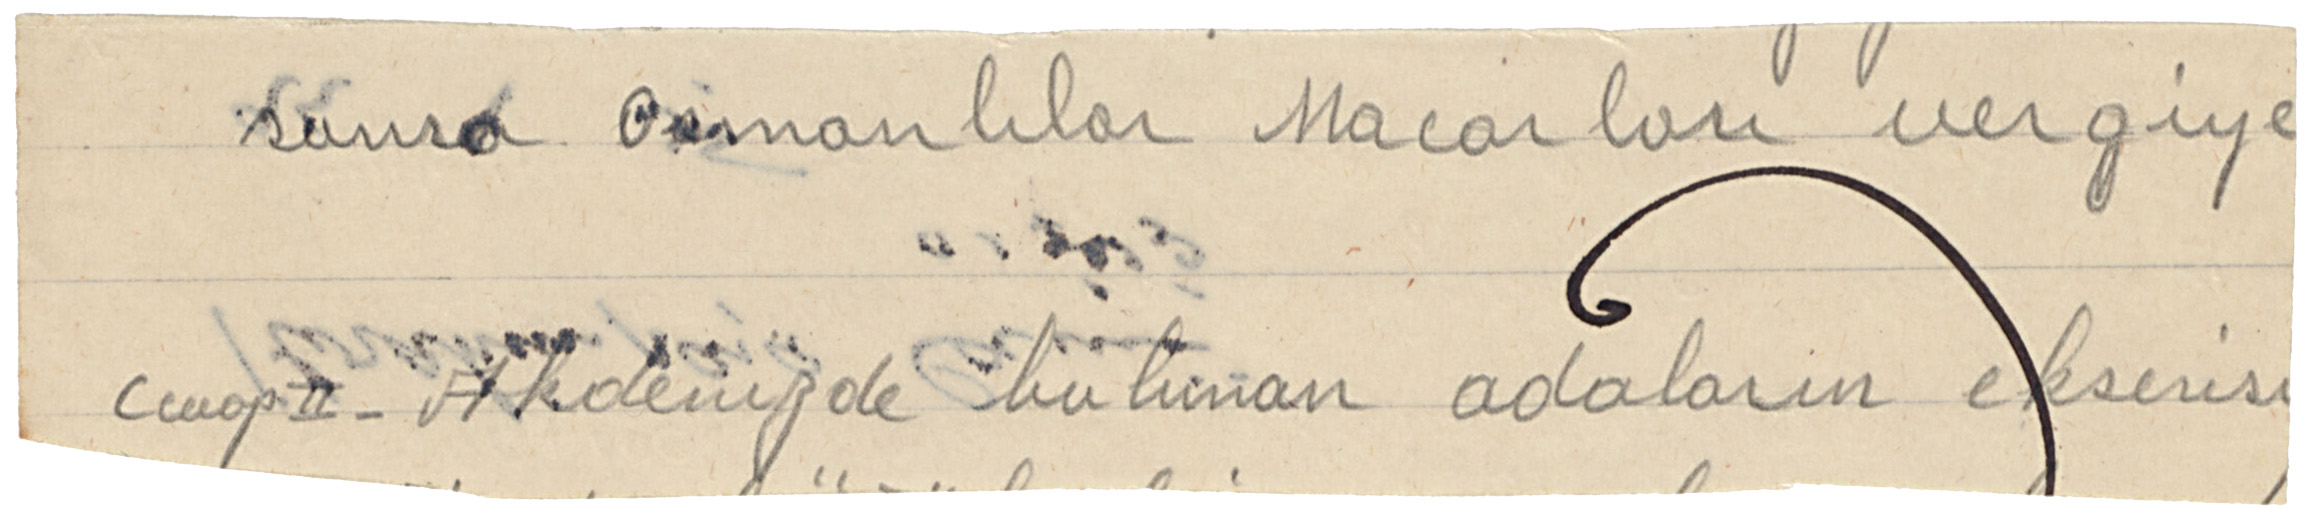 sonra Osmanlılar Macarları vergiye
Cevap II - Akdenizde bulunan adaların ekserisi